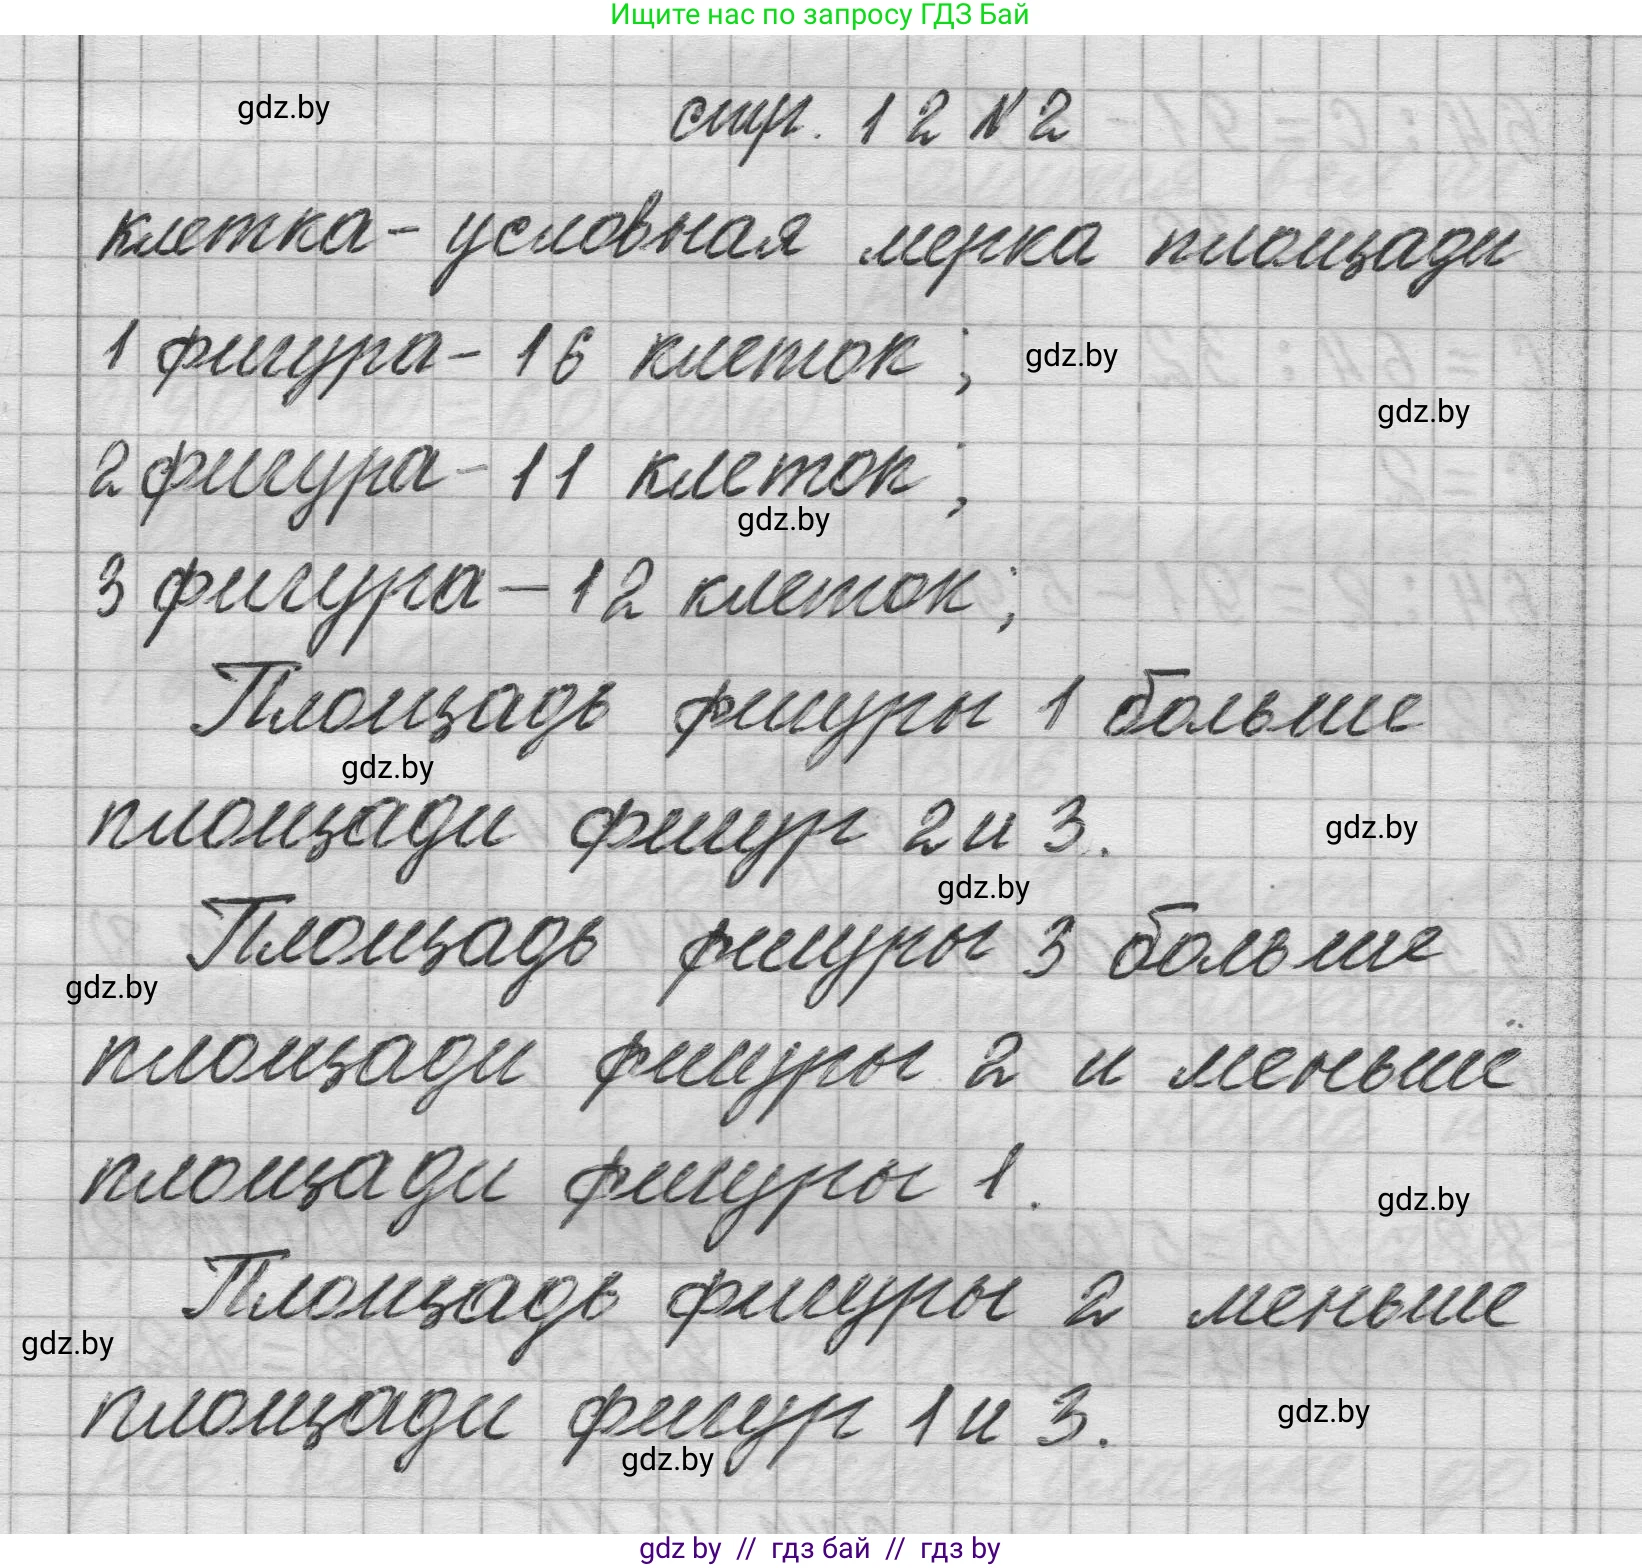 Ищите нас по запросу ГДЗ Бай
gdz.by
стр. 12 №2
клетка - условная мерка площади
1 фигура - 16 клеток;
gdz.by
gdz.by
2 фигура - 11 клеток;
gdz.by
3 фигура - 12 клеток;
Площадь фигуры 1 больше
gdz.by
площади фигур 2 и 3.
gdz.by
gdz.by
Площадь фигуры 3 больше
gdz.by
площади фигуры 2 и меньше
площади фигуры 1.
gdz.by
Площадь фигуры 2 меньше
gdz.by
площади фигур 1 и 3.
gdz.by
gdz.by
gdz by // гдз бай // гдз by